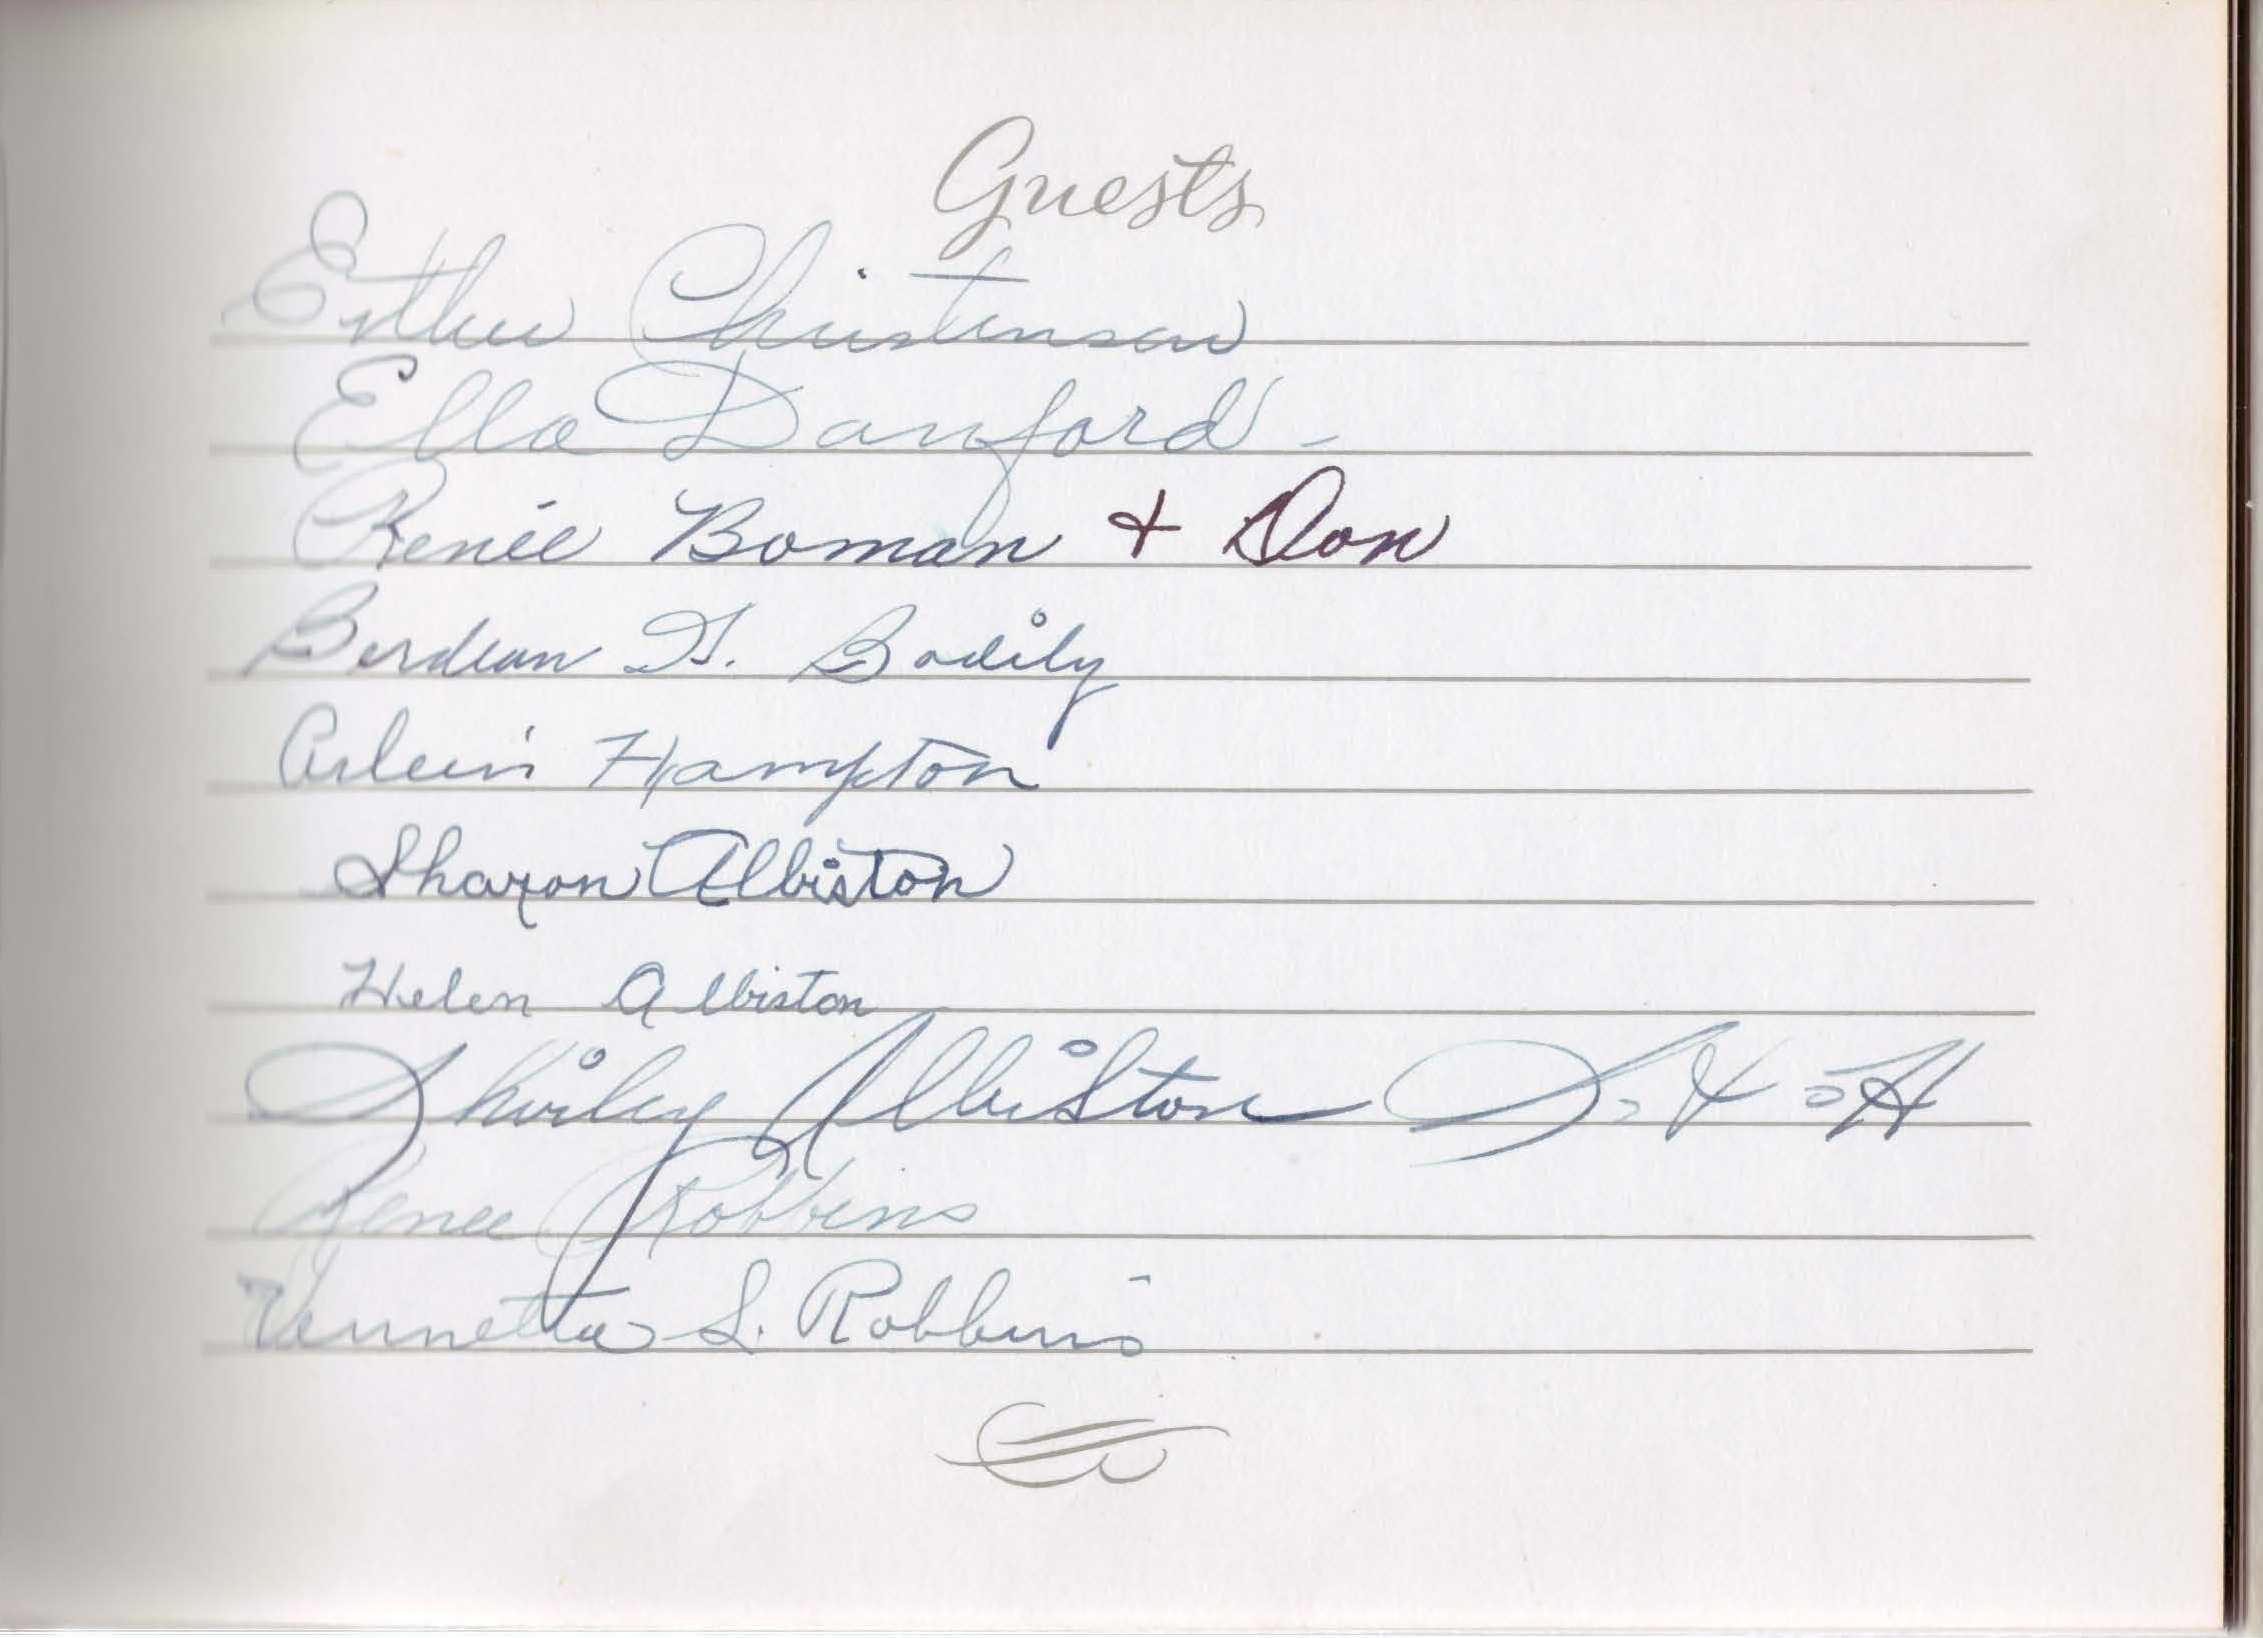 Guests
Esther Christensen
Ella Danford -
Renée Boman + Don
Berdean T. Bodily
Arlein Hampton
Sharon Albiston
Helen Albiston
Shirley Albiston
Renee Robbins
Vennetta S. Robbins